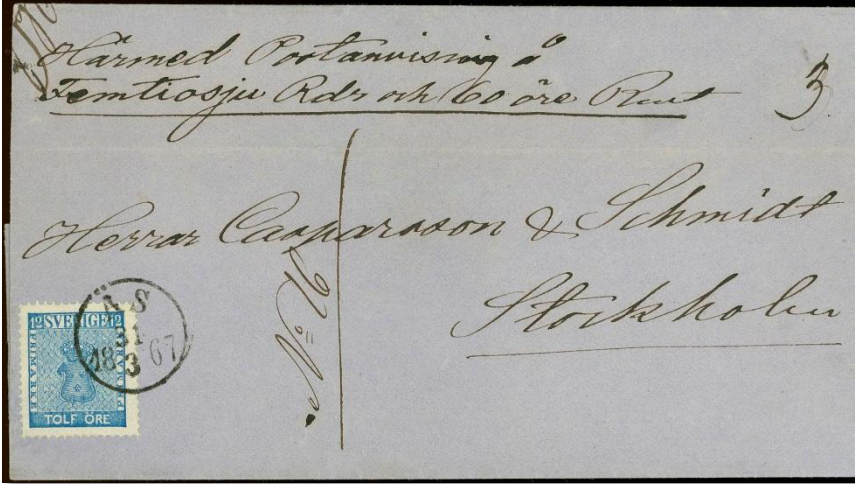 Härmed Postanvisning å
Femtiosju Rdr och 60 öre Rmt
3
Herrar Casparsson & Schmidt
Stockholm
No
ÄS
31
18 3 67
12 SVERIGE 12
FRIMÄRKE
TOLF ÖRE